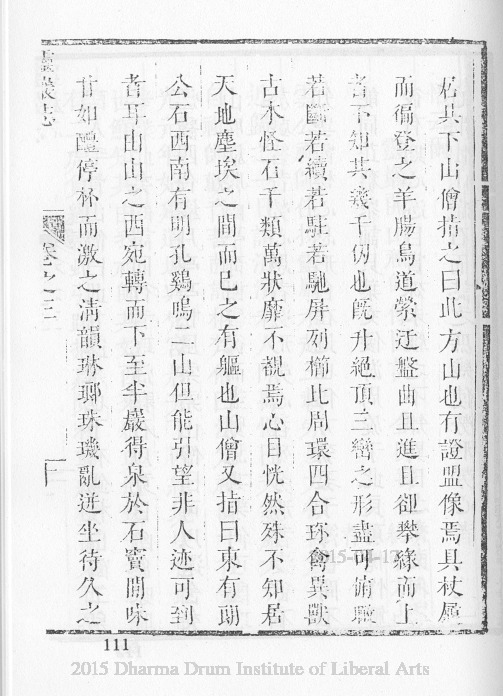 居其下山僧指之曰此方山也有證盟像焉具杖屨
而徧登之羊腸鳥道縈迂盤曲且進且卻攀緣而上
者不知其幾千仭也旣升絕頂三巒之形盡可俯覽
若斷若續若駐若馳屏列櫛比周環四合珎禽異獸
古木怪石千類萬狀靡不覩焉心目恍然殊不知居
天地塵埃之間而巳之有軀也山僧又指曰東有朗
公石西南有明孔鷄鳴二山但能引望非人迹可到
者耳由山之西宛轉而下至半巖得泉於石竇間味
甘如醴停杯而激之淸韻琳瑯珠璣亂迸坐待久之
靈巖志
卷之三
十
111
2015 Dharma Drum Institute of Liberal Arts